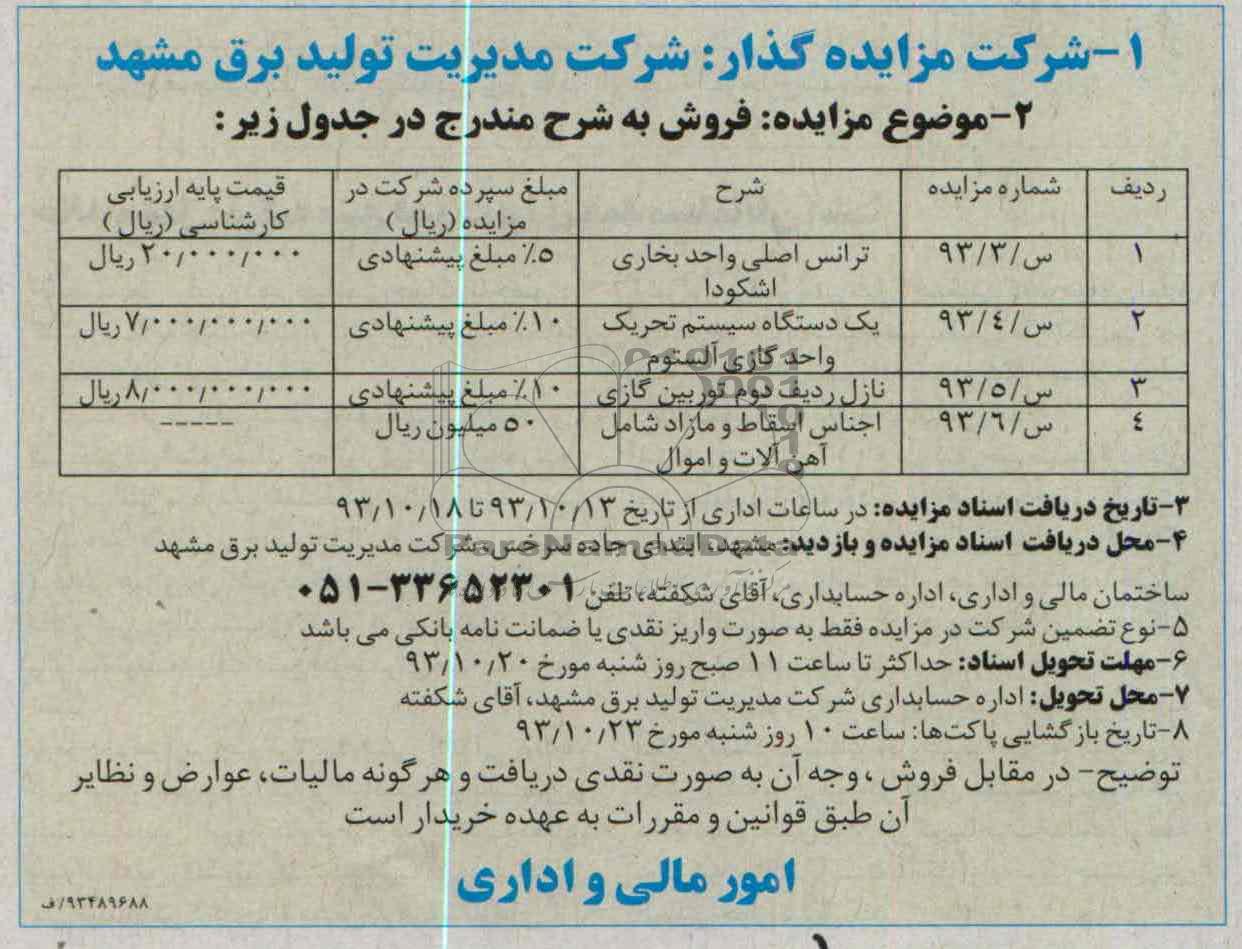 ۱-شرکت مزایده گذار: شرکت مدیریت تولید برق مشهد
۲-موضوع مزایده: فروش به شرح مندرج در جدول زیر:
ردیف شماره مزایده شرح مبلغ سپرده شرکت در مزایده (ریال) قیمت پایه ارزیابی کارشناسی (ریال)
۱ س/۹۳/۳ ترانس اصلی واحد بخاری اشکودا ۵٪ مبلغ پیشنهادی ۲۰/۰۰۰/۰۰۰ ریال
۲ س/۹۳/٤ یک دستگاه سیستم تحریک واحد گازی آلستوم ۱۰٪ مبلغ پیشنهادی ۷/۰۰۰/۰۰۰/۰۰۰ ریال
۳ س/۹۳/۵ نازل ردیف دوم توربین گازی ۱۰٪ مبلغ پیشنهادی ۸/۰۰۰/۰۰۰/۰۰۰ ریال
٤ س/۹۳/٦ اجناس اسقاط و مازاد شامل آهن آلات و اموال ۵۰ میلیون ریال -----
۳-تاریخ دریافت اسناد مزایده: در ساعات اداری از تاریخ ۹۳/۱۰/۱۳ تا ۹۳/۱۰/۱۸
۴-محل دریافت اسناد مزایده و بازدید: مشهد، ابتدای جاده سرخس، شرکت مدیریت تولید برق مشهد
ساختمان مالی و اداری، اداره حسابداری، آقای شکفته، تلفن ۳۳۶۵۲۳۰۱-۰۵۱
۵-نوع تضمین شرکت در مزایده فقط به صورت واریز نقدی یا ضمانت نامه بانکی می باشد
۶-مهلت تحویل اسناد: حداکثر تا ساعت ۱۱ صبح روز شنبه مورخ ۹۳/۱۰/۲۰
۷-محل تحویل: اداره حسابداری شرکت مدیریت تولید برق مشهد، آقای شکفته
۸-تاریخ بازگشایی پاکت‌ها: ساعت ۱۰ روز شنبه مورخ ۹۳/۱۰/۲۳
توضیح- در مقابل فروش، وجه آن به صورت نقدی دریافت و هرگونه مالیات، عوارض و نظایر
آن طبق قوانین و مقررات به عهده خریدار است
امور مالی و اداری
۹۳۴۸۹۶۸۸/ف
ParsNamadData